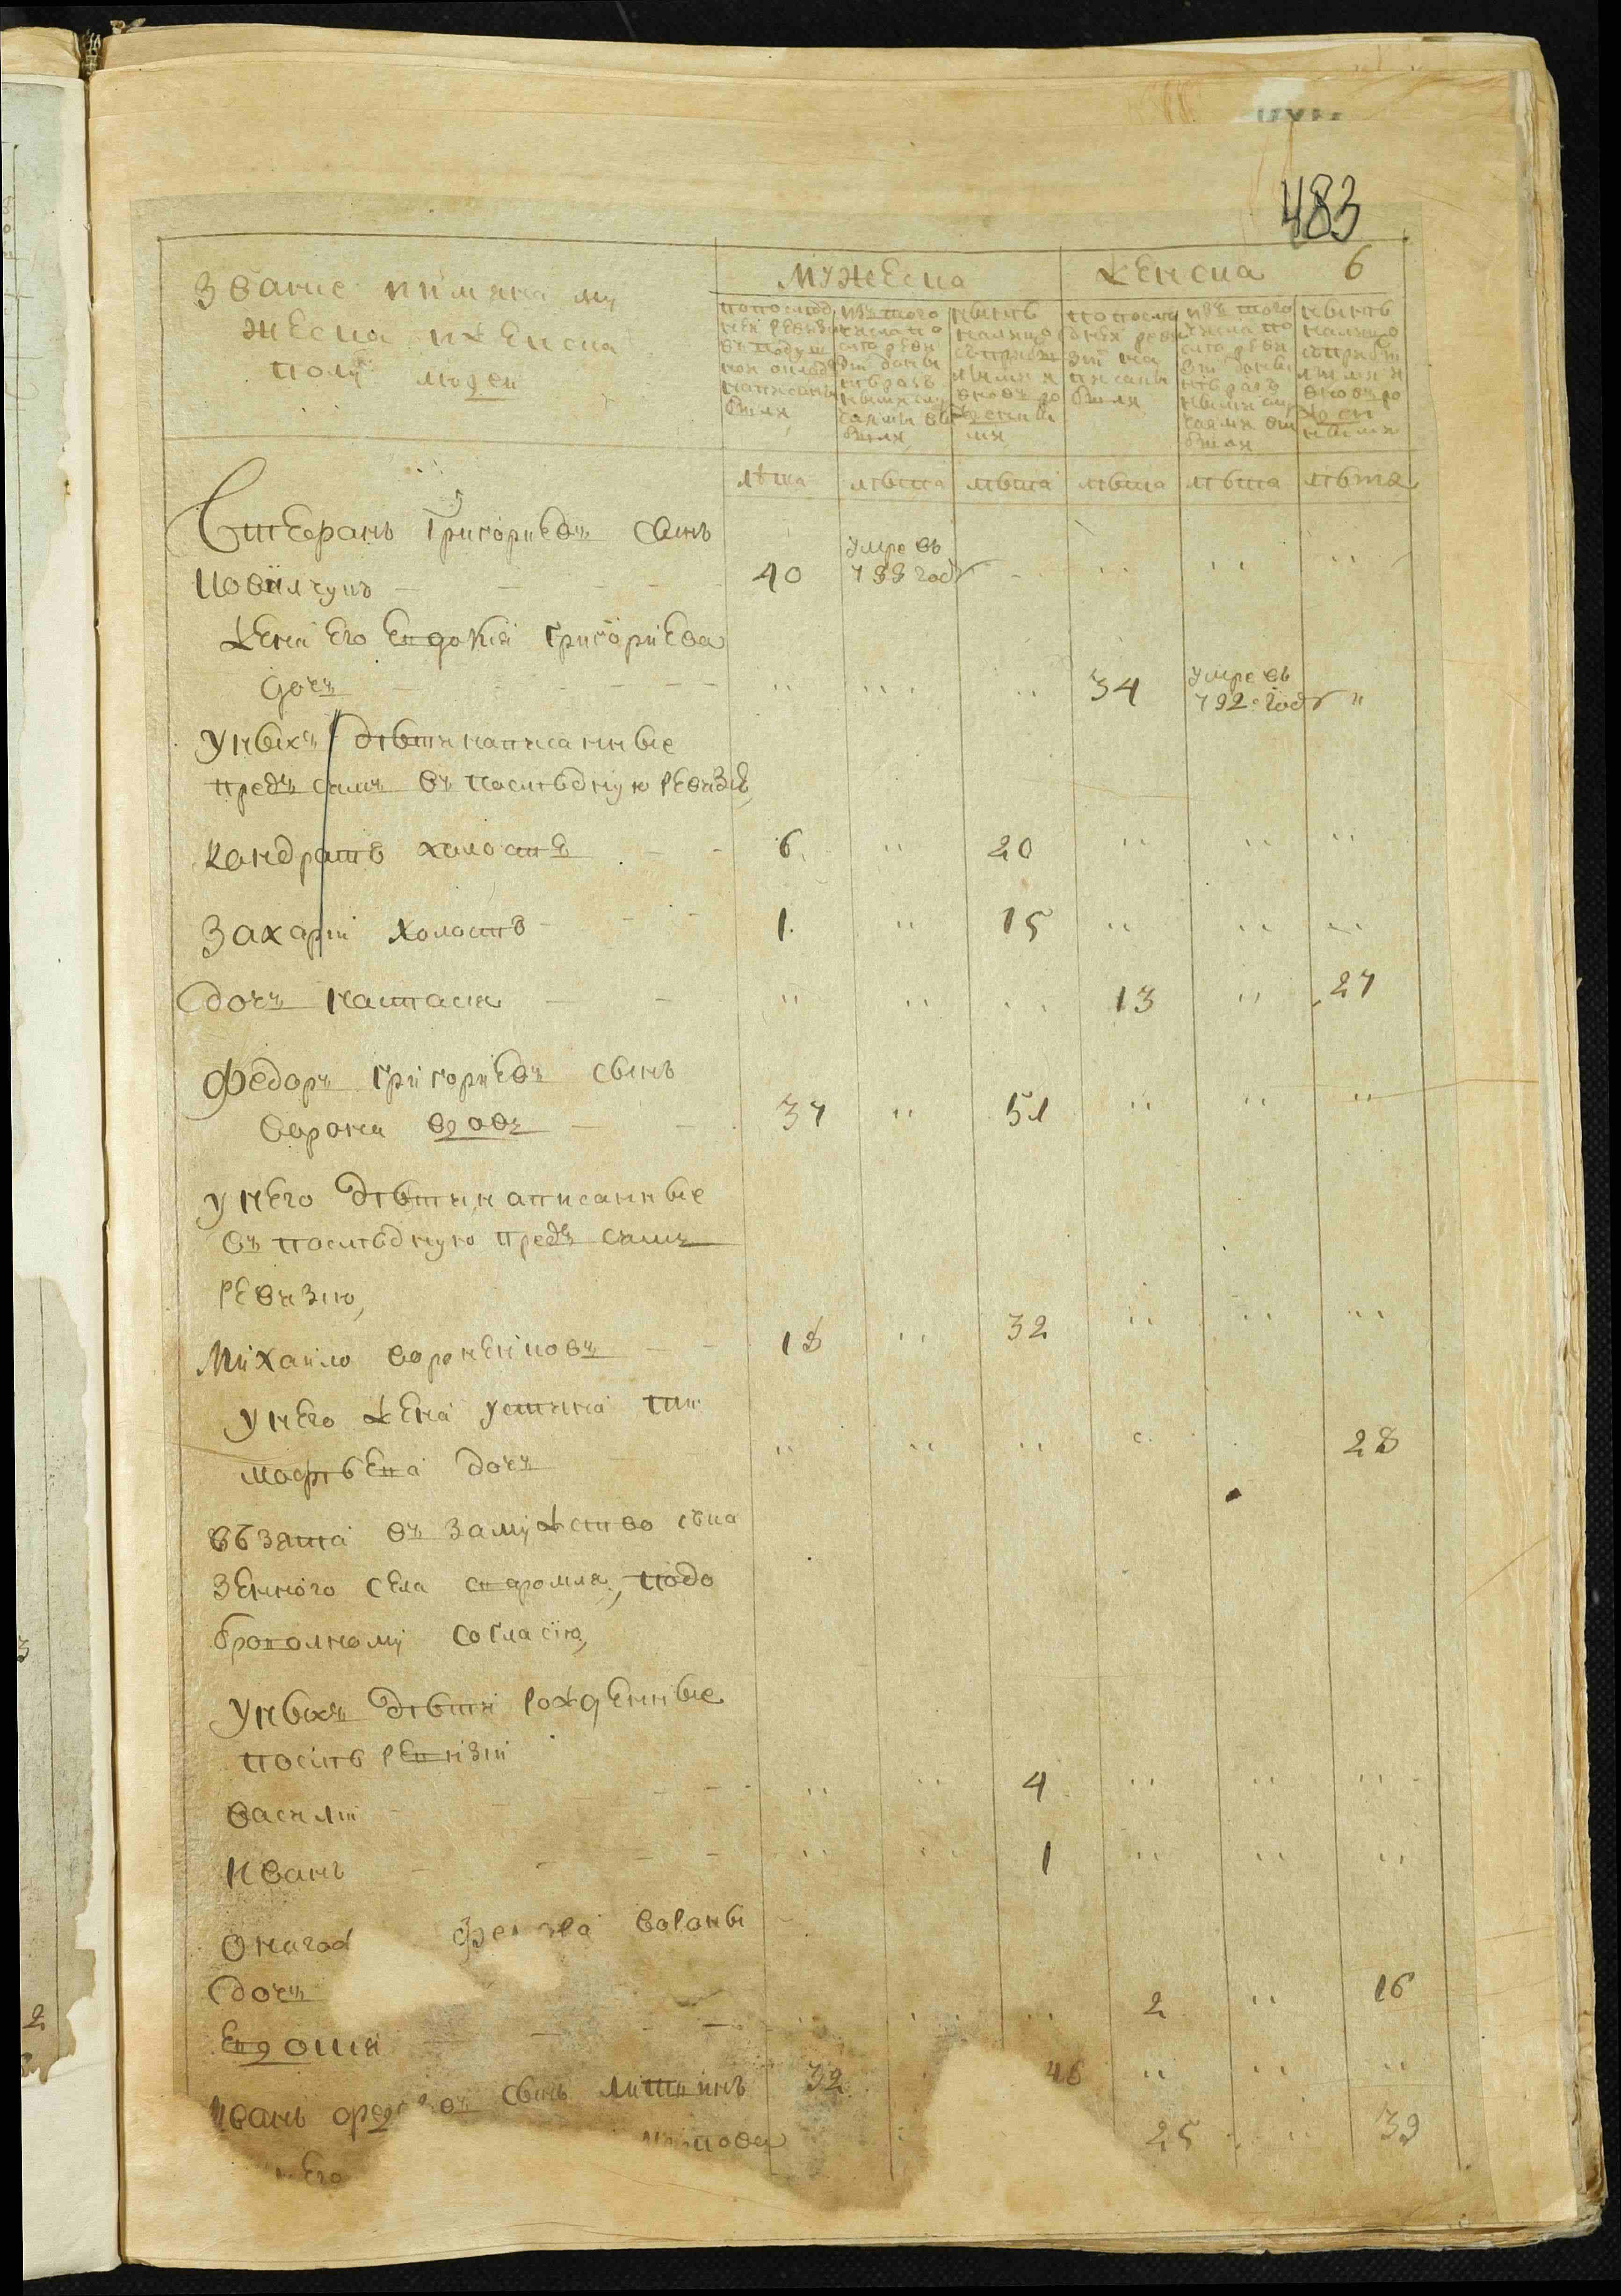 483
6
Звание и имяна му
жеска и женска
полу людей
Мужеска
Женска
по послед
ней ревизи
въ подуш
ной окладъ
написаны
были
изъ того
числа по
сле реви
зіи до ны
нѣ разъ
ными слу
чаями вы
были
нынѣ
налицо
съ прибы
лыми и
вновь ро
жденны
ми
по после
дней реви
зіи на
писаны
были
изъ того
числа по
сле реви
зіи до ны
нѣ разъ
ными слу
чаями вы
были
нынѣ
налицо
съ прибы
лыми и
вновь ро
жден
ными
лѣта лѣта лѣта лѣта лѣта лѣта
Стефанъ Григориевъ сынъ
Ковилчукъ 40 умре въ 799 году
Жена его Евдокія Григориева
дочь 34 умре въ 792 году
У ныхъ дѣти написанные
предъ симъ въ последную ревизію
Кондратъ холостъ 6 20
Захарій холостъ 1 15
Дочь Настасия 13 27
Федоръ Григориевъ сынъ
Ворона вдовъ 37 51
У него дѣти написанные
въ последную предъ симъ
ревизию,
Михайло Воронénковъ 18 32
У него жена Устина Ти
мофѣева дочь 28
въ взята въ замужство с ка
зенного села Старомля, по до
бровол­ному согласію,
У ныхъ дѣти рожденные
послѣ ревизіи
Василій 4
Иванъ 1
Онагож Федора Вороны
Дочь
Евдошия 2 16
Иванъ сынъ Литвинъ 32 46
него 25 39